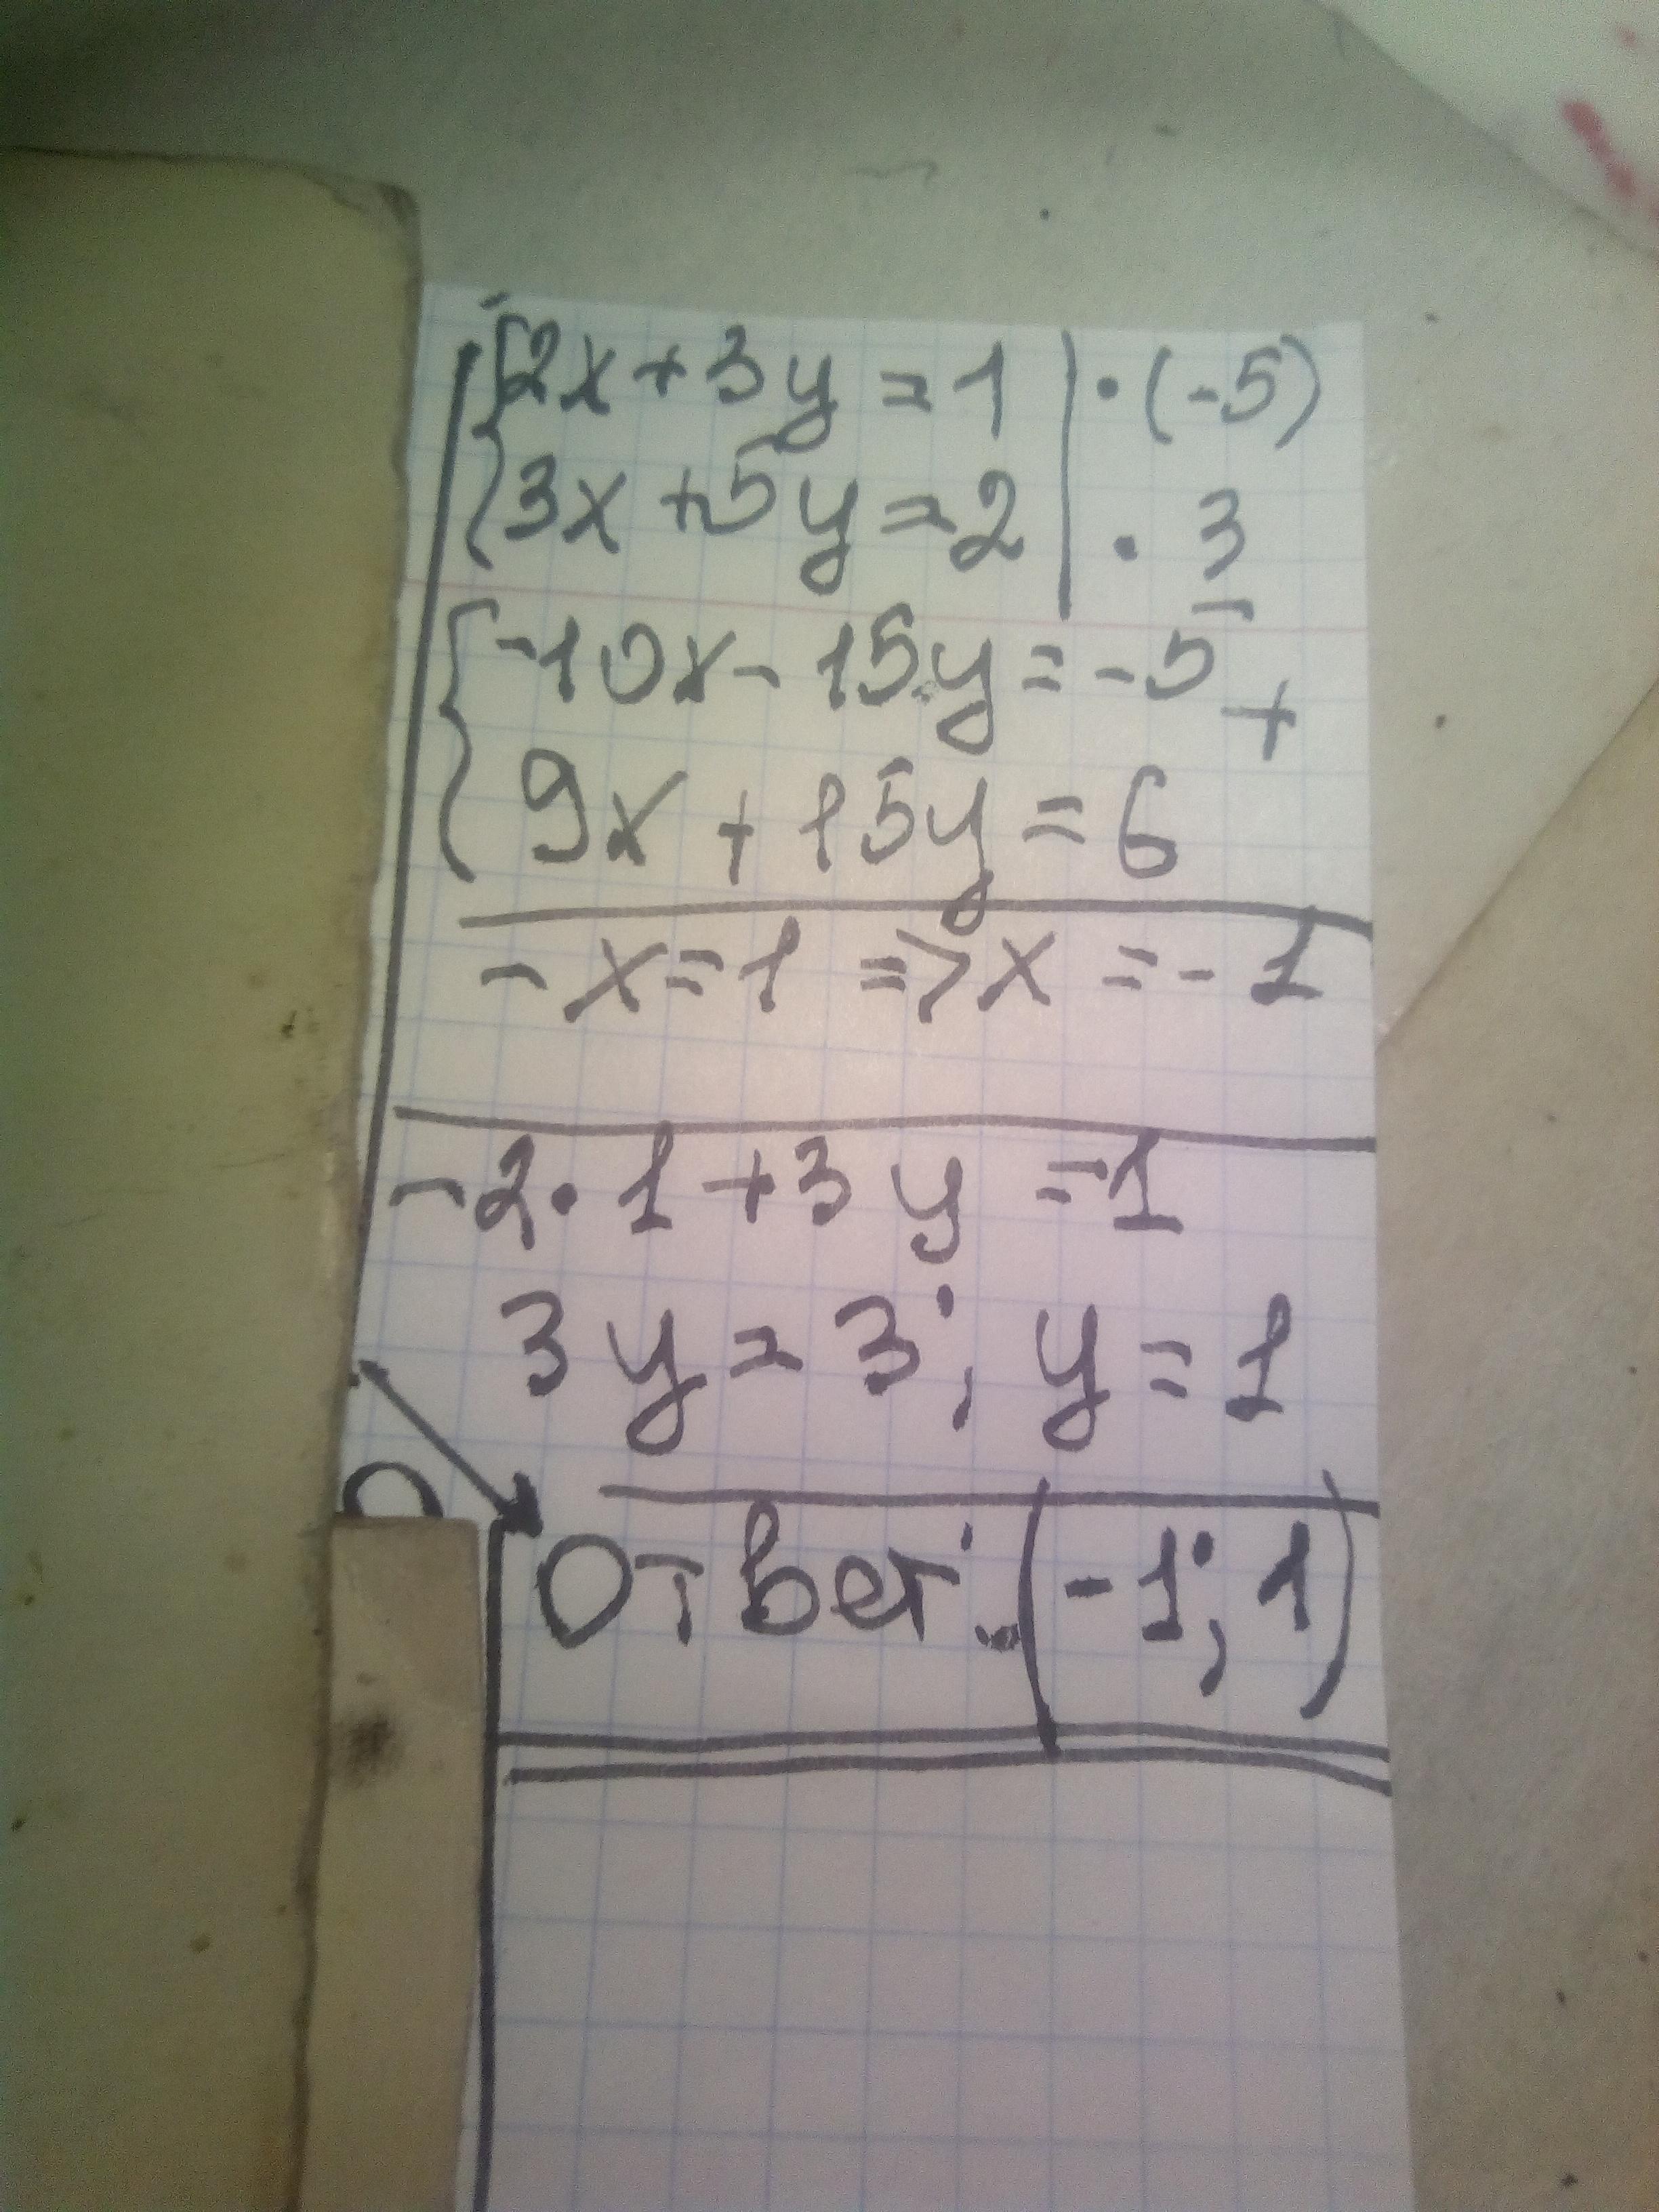 {2x+3y=1 | ·(-5)
{3x+5y=2 | · 3
{-10x-15y=-5 +
{9x+15y=6
-x=1 => x=-1
-2·1+3y=1
3y=3; y=1
Ответ: (-1; 1)